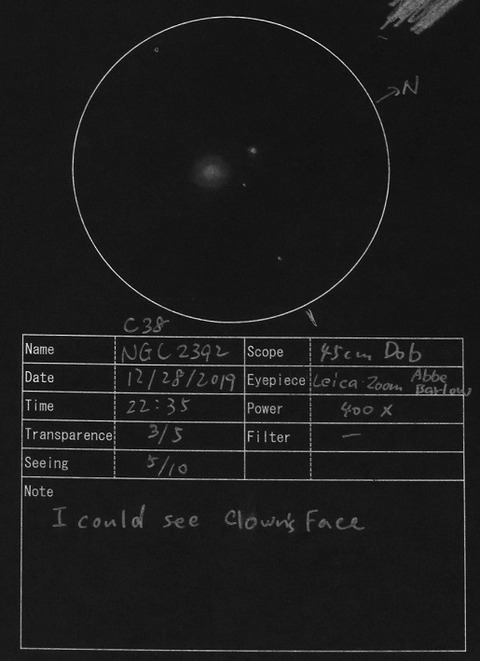 N
C38
Name NGC2392 Scope 45cm Dob
Date 12/28/2019 Eyepiece Leica Zoom Abbe Barlow
Time 22:35 Power 400x
Transparence 3/5 Filter —
Seeing 5/10
Note
I could see Clown's Face